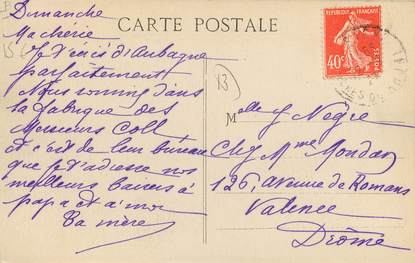 CARTE POSTALE
Dimanche
Ma cherie
Je t'écris d'Aubagne
parfaitement
Nous sommes dans
la fabrique des
Messieurs Coll
et c'est de leur bureau
que je t'adresse nos
meilleurs baisers à
papa et à moi
Ta mère
13
REPUBLIQUE FRANÇAISE
40c
POSTES
Melle Y Nègre
Chez Mme Mondan
126, avenue de Romans
Valence
Drôme